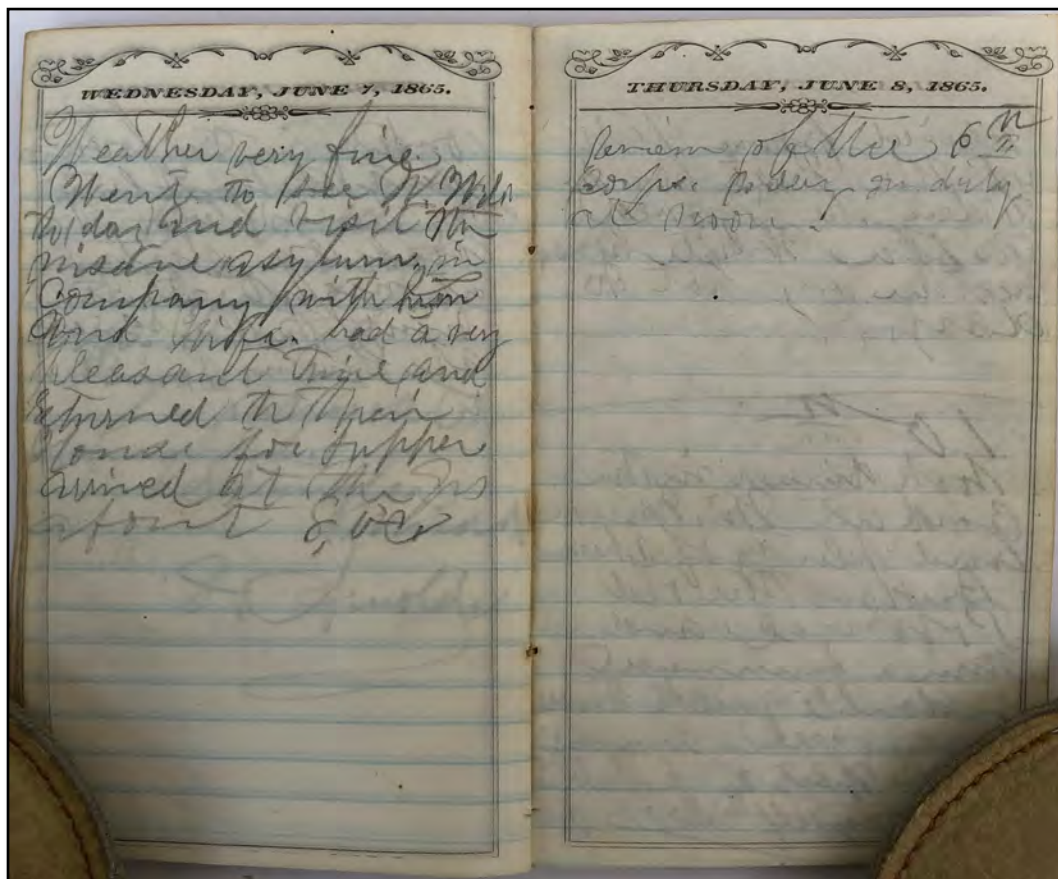 WEDNESDAY, JUNE 7, 1865.
Weather very fine.
Went to see W. Wild
to day and visit the
insane asylum, in
Company with him
and Wife. had a very
pleasant time and
returned to their
house for supper
arrived at the
about 8, OC.
THURSDAY, JUNE 8, 1865.
Review of the 6th
Corps. to day. on duty
at noon.